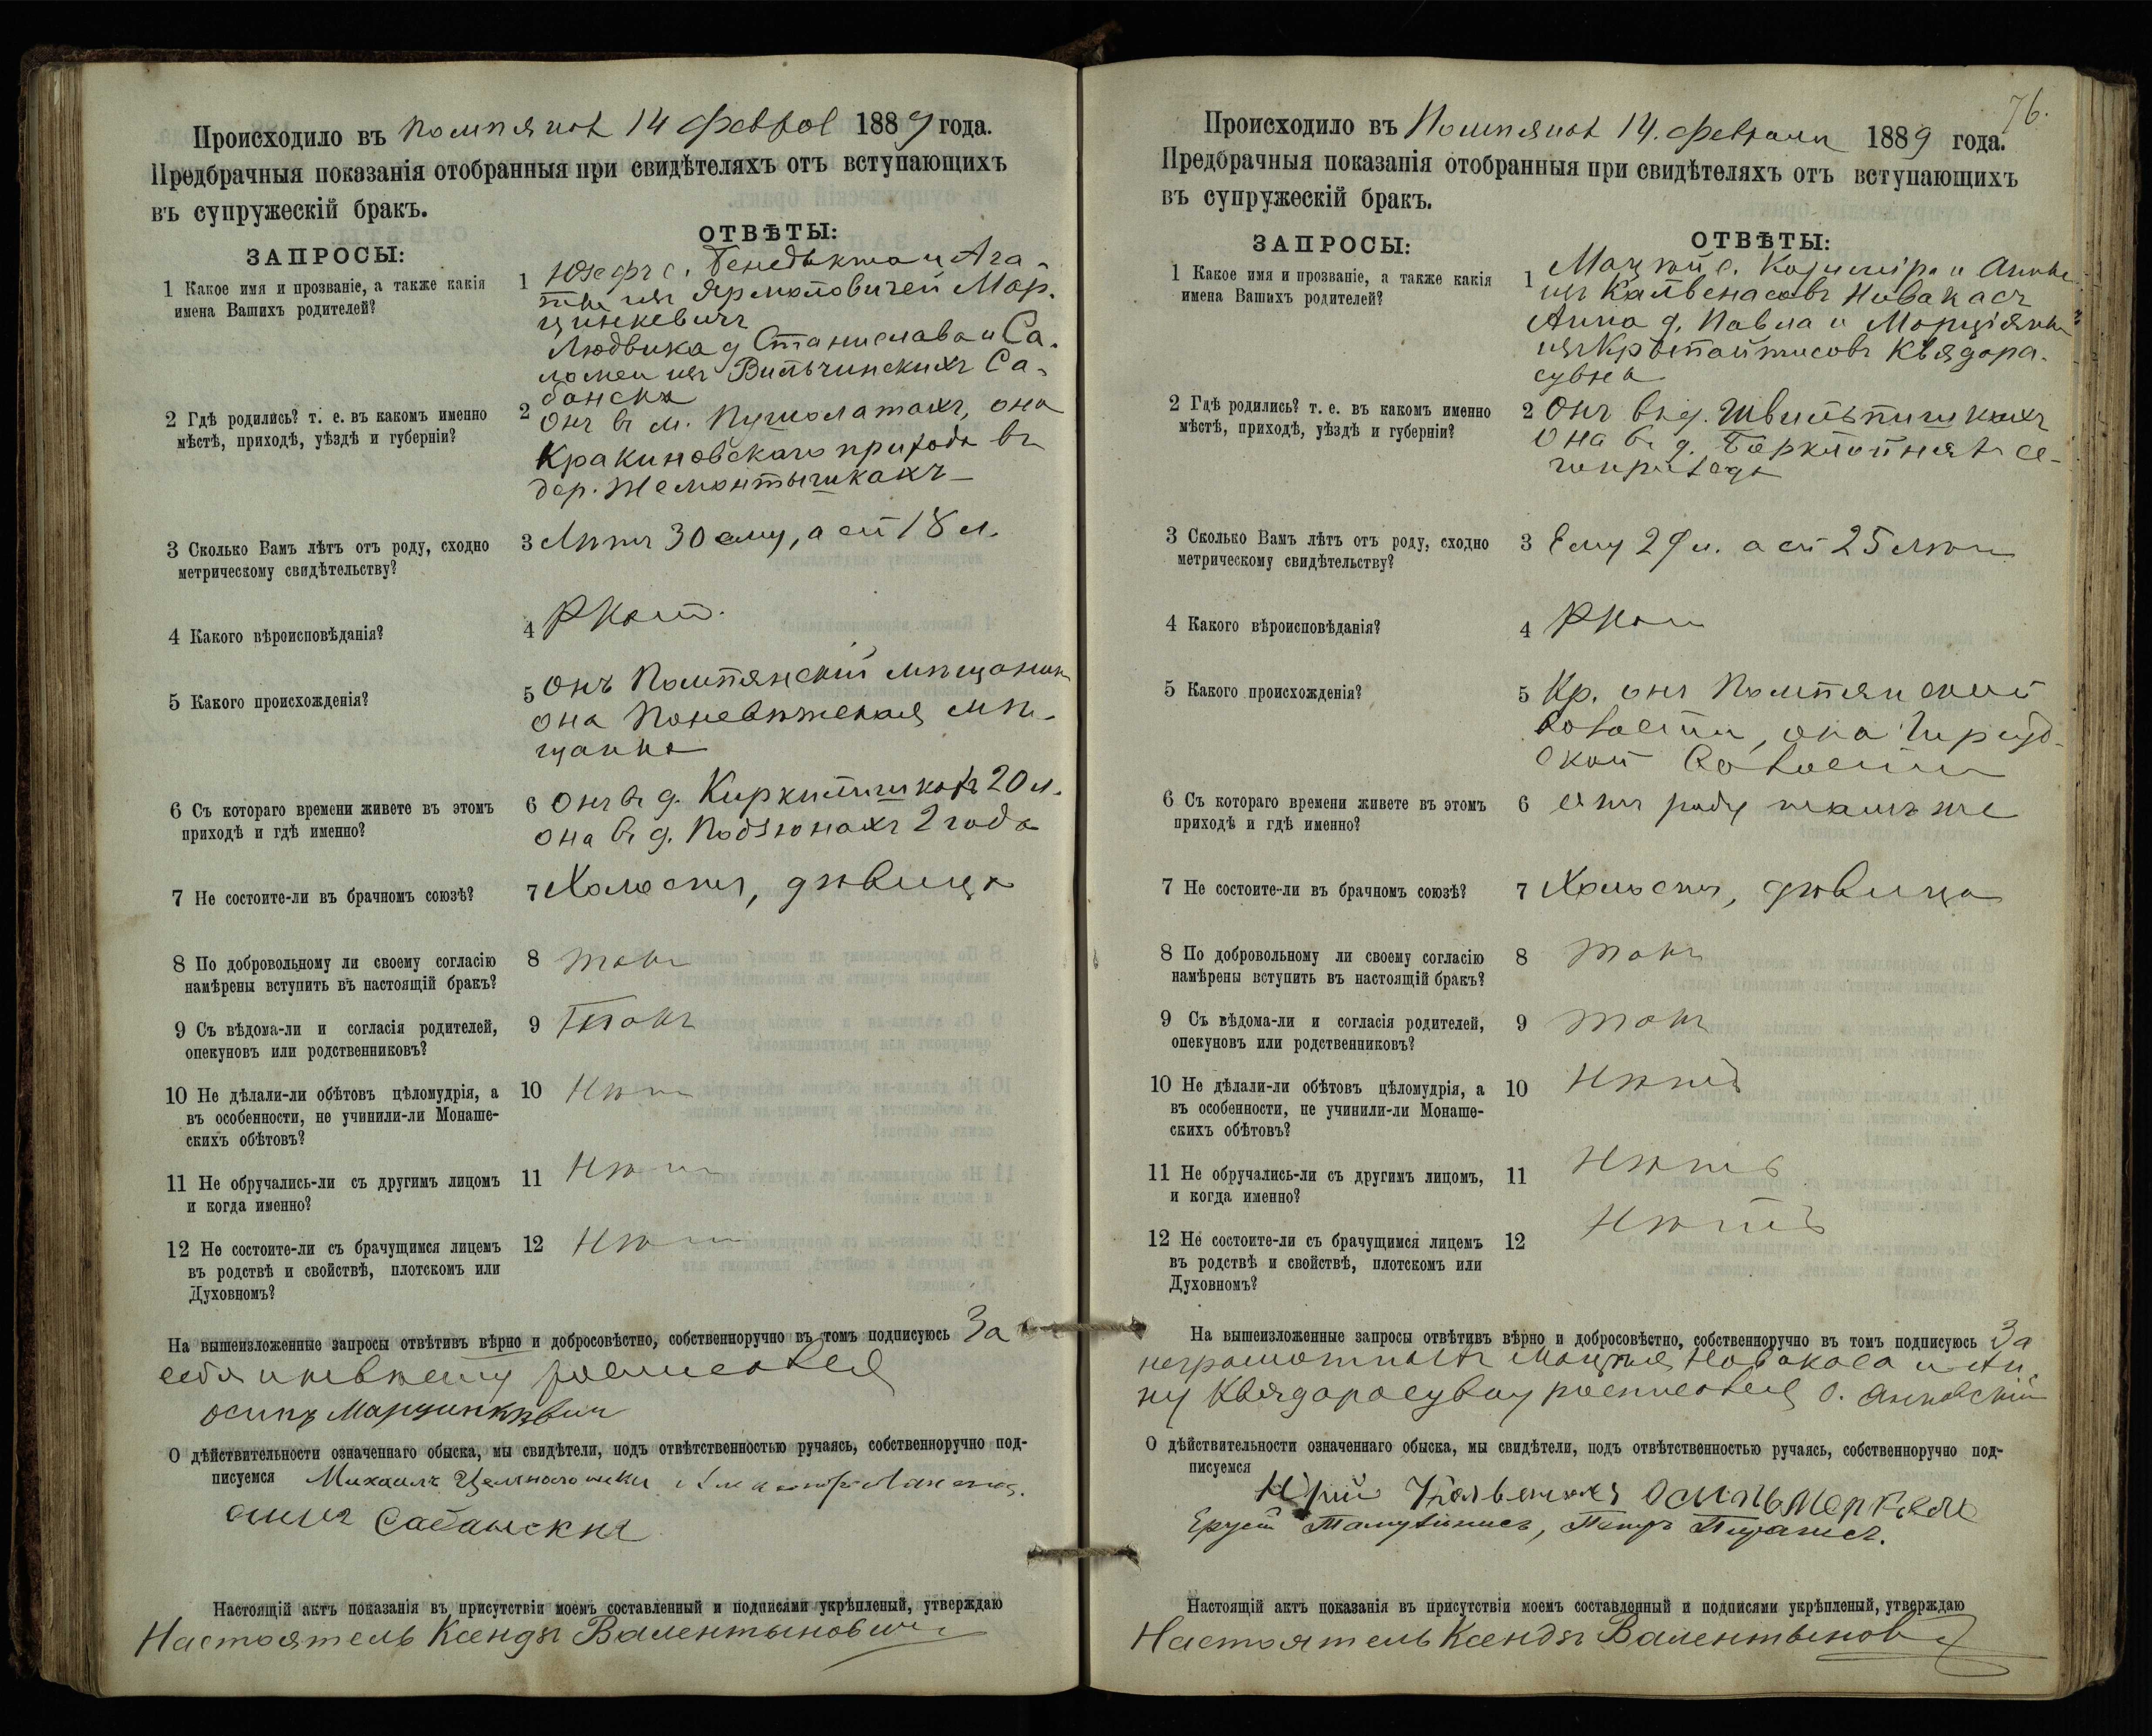 Происходило въ Помпянах 14 феврал 1889 года.
Предбрачныя показанія отобранныя при свидѣтеляхъ отъ вступающихъ
въ супружескій бракъ.
ЗАПРОСЫ:
ОТВѢТЫ:
1 Какое имя и прозваніе, а также какія
имена Вашихъ родителей?
1 Юзефъ с. Бенедыкта и Ага-
ты изъ Ярмоловичей Мар-
цинкевичъ
Людвика д Станислава и Са-
ломеи изъ Вильчинскихъ Са-
банска
2 Гдѣ родились? т. е. въ какомъ именно
мѣстѣ, приходѣ, уѣздѣ и губерніи?
2 Онъ въ м. Пушолатахъ, она
Кракиновскаго прихода въ
дер. Жемонтышкахъ
3 Сколько Вамъ лѣтъ отъ роду, сходно
метрическому свидѣтельству?
3 Лѣтъ 30 ему, а ей 18 л.
4 Какого вѣроисповѣданія?
4 РКат.
5 Какого происхожденія?
5 Онъ Помпянскій мѣщанинъ
она Поневѣжская мѣ-
щанка
6 Съ котораго времени живете въ этомъ
приходѣ и гдѣ именно?
6 Онъ въ д. Киркилишкахъ 20 л.
она въ д. 2 года
7 Не состоите-ли въ брачномъ союзѣ?
7 Холостъ, дѣвица
8 По добровольному ли своему согласію
намѣрены вступить въ настоящій бракъ?
8 такъ
9 Съ вѣдома-ли и согласія родителей,
опекуновъ или родственниковъ?
9 Такъ
10 Не дѣлали-ли обѣтовъ цѣломудрія, а
въ особенности, не учинили-ли Монаше-
скихъ обѣтовъ?
10 Нѣтъ
11 Не обручались-ли съ другимъ лицомъ
и когда именно?
11 Нѣтъ
12 Не состоите-ли съ брачущимся лицемъ
въ родствѣ и свойствѣ, плотскомъ или
Духовномъ?
12 Нѣтъ
На вышеизложенные запросы отвѣтивъ вѣрно и добросовѣстно, собственноручно въ томъ подписуюсь За
себя и невѣсту росписався
осипъ Марцинкѣвич
О дѣйствительности означеннаго обыска, мы свидѣтели, подъ отвѣтственностью ручаясь, собственноручно под-
писуемся Михаилъ
Сабански
Настоящій актъ показанія въ присутствіи моемъ составленный и подписями укрѣпленый, утверждаю
Настоятель Ксендзъ Валентынович
76.
Происходило въ Помпянах 14. февраля 1889 года.
Предбрачныя показанія отобранныя при свидѣтеляхъ отъ вступающихъ
въ супружескій бракъ.
ЗАПРОСЫ:
ОТВѢТЫ:
1 Какое имя и прозваніе, а также какія
имена Вашихъ родителей?
1 Мацѣй с. Казимира и Анны
изъ Кальвенасовъ Новакасъ
Анна д. Павла и Марціяны
изъ Квядара-
сувна
2 Гдѣ родились? т. е. въ какомъ именно
мѣстѣ, приходѣ, уѣздѣ и губерніи?
2 Онъ въ д. Швильпишкахъ
она въ д. се-
го прихода
3 Сколько Вамъ лѣтъ отъ роду, сходно
метрическому свидѣтельству?
3 Ему 29 л. а ей 25 лѣтъ
4 Какого вѣроисповѣданія?
4 РКат
5 Какого происхожденія?
5 Кр. онъ Помпянской
волости, она
ской волости
6 Съ котораго времени живете въ этомъ
приходѣ и гдѣ именно?
6 съ роду тамъ же
7 Не состоите-ли въ брачномъ союзѣ?
7 Холостъ, дѣвица
8 По добровольному ли своему согласію
намѣрены вступить въ настоящій бракъ?
8 такъ
9 Съ вѣдома-ли и согласія родителей,
опекуновъ или родственниковъ?
9 такъ
10 Не дѣлали-ли обѣтовъ цѣломудрія, а
въ особенности, не учинили-ли Монаше-
скихъ обѣтовъ?
10 Нѣтъ
11 Не обручались-ли съ другимъ лицомъ,
и когда именно?
11 Нѣтъ
12 Не состоите-ли съ брачущимся лицемъ
въ родствѣ и свойствѣ, плотскомъ или
Духовномъ?
12 Нѣтъ
На вышеизложенные запросы отвѣтивъ вѣрно и добросовѣстно, собственноручно въ томъ подписуюсь За
неграмотныхъ Мацѣя Новакаса и Ан-
ну Квядарасувну росписався О. Янковскій
О дѣйствительности означеннаго обыска, мы свидѣтели, подъ отвѣтственностью ручаясь, собственноручно под-
писуемся
Юрій Кальвенасъ Осипъ
Петръ
Настоящій актъ показанія въ присутствіи моемъ составленный и подписями укрѣпленый, утверждаю
Настоятель Ксендзъ Валентынович